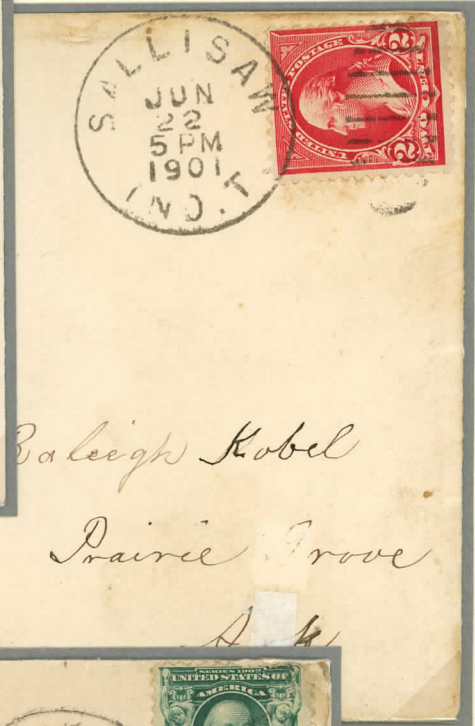 SALLISAW
JUN
22
5 PM
1901
IND. T.
UNITED STATES POSTAGE
2 2
Raleigh Kobel
Prairie rove
A k
SERIES 1902
UNITED STATES OF
AMERICA